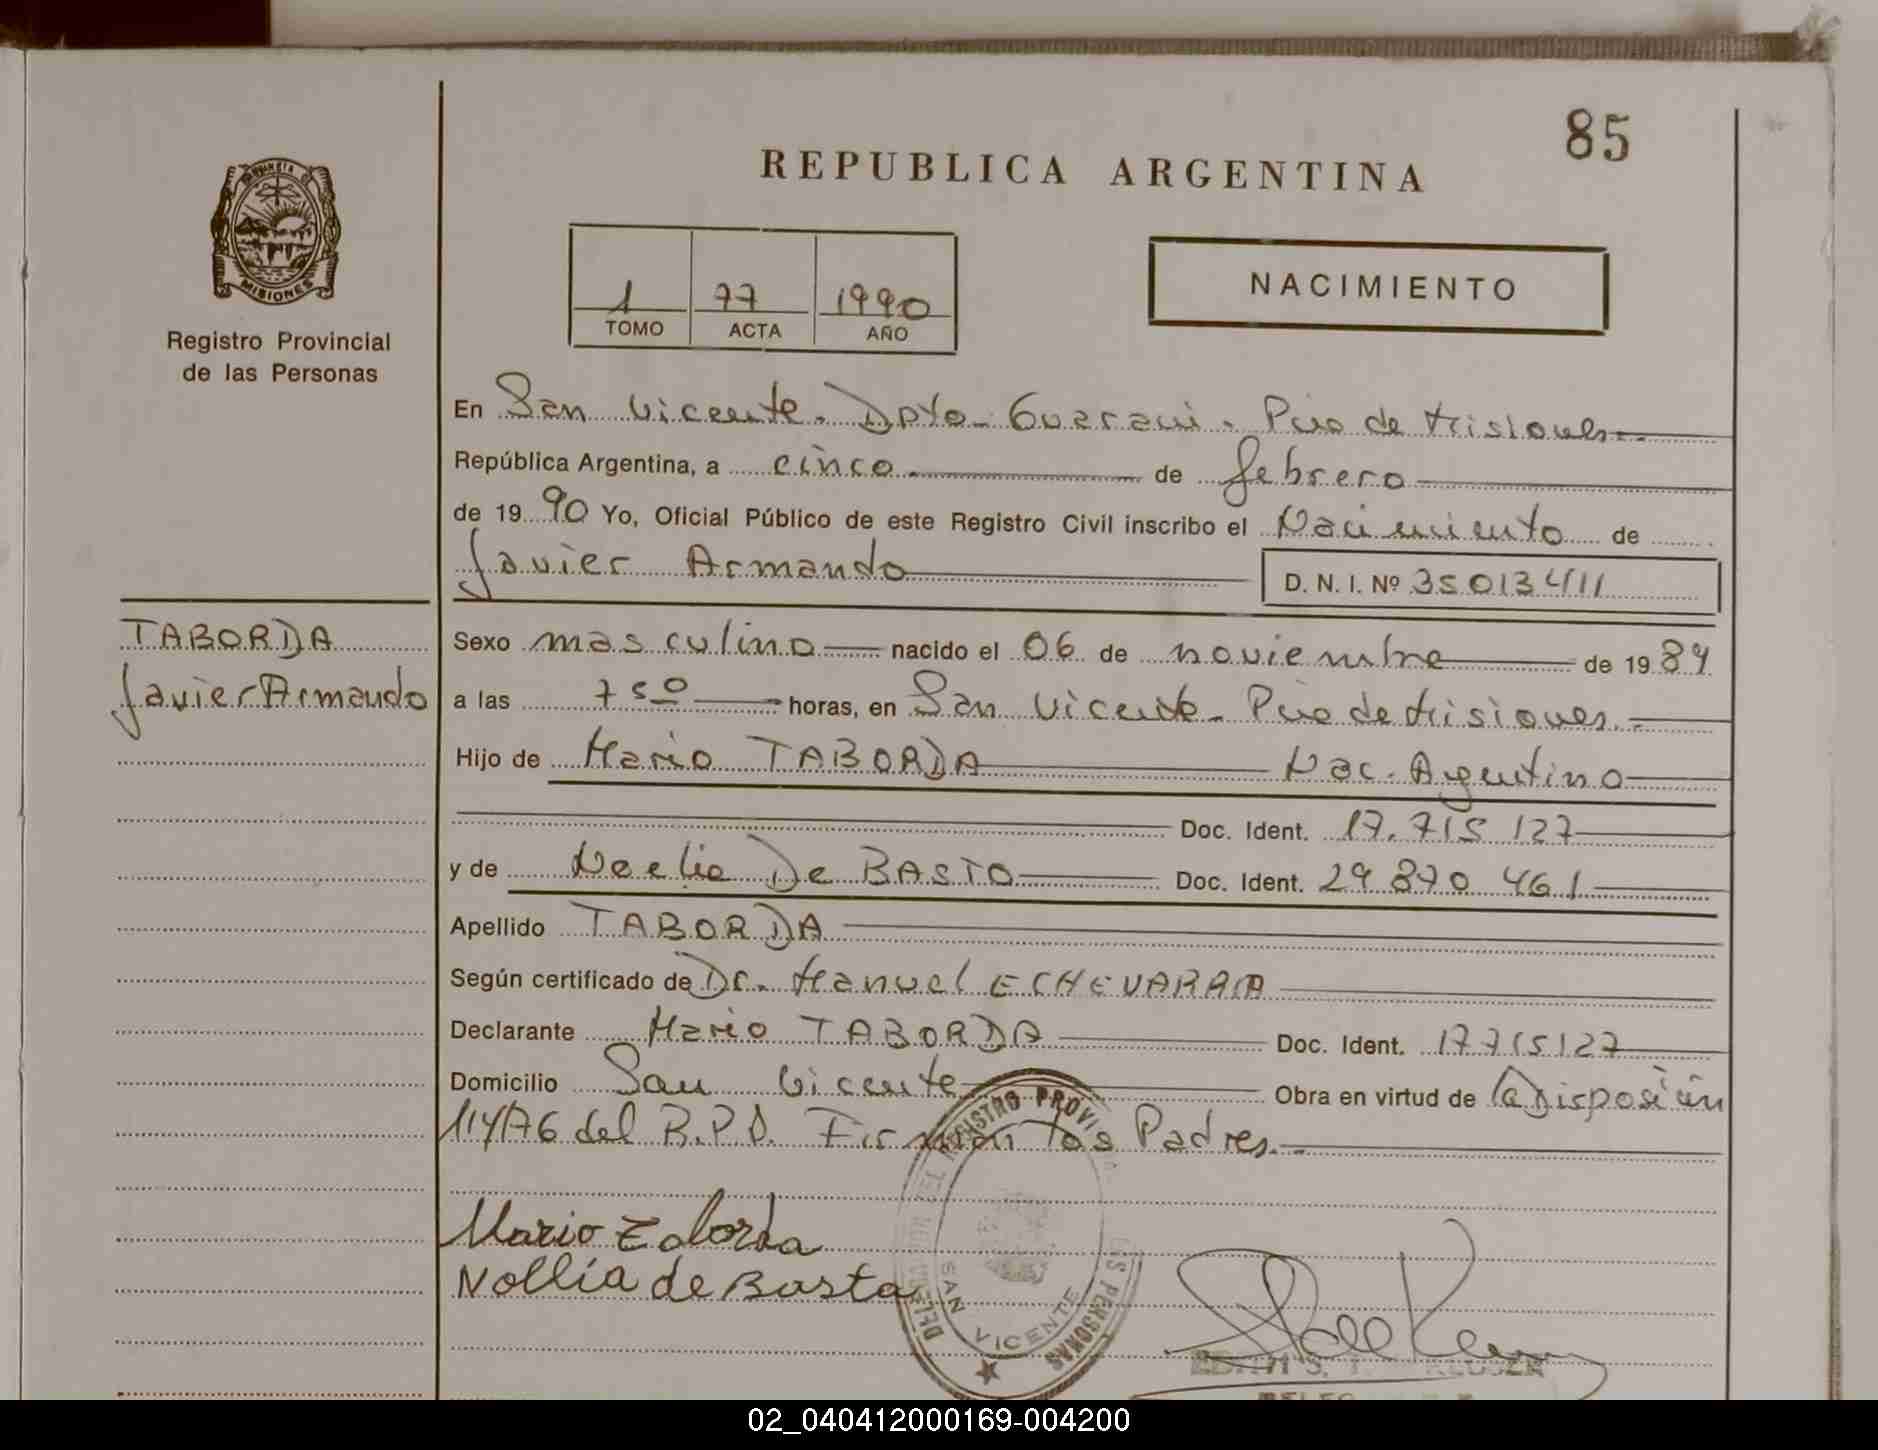 85
REPUBLICA ARGENTINA
PROVINCIA DE
MISIONES
Registro Provincial
de las Personas
1 77 1990
TOMO ACTA AÑO
NACIMIENTO
En San Vicente. Dpto. Guarani. Pcia de Misiones.-
República Argentina, a cinco de febrero
de 19 90 Yo, Oficial Público de este Registro Civil inscribo el Nacimiento de
Javier Armando D. N. I. Nº 35013411
TABORDA
Javier Armando
Sexo masculino nacido el 06 de noviembre de 19 89
a las 7 50 horas, en San Vicente - Pcia de Misiones.-
Hijo de Mario TABORDA Nac. Argentino
Doc. Ident. 17.715 127
y de Noelia De BASTO Doc. Ident. 29 870 461
Apellido TABORDA
Según certificado de Dr. Manuel ECHEVARRIA
Declarante Mario TABORDA Doc. Ident. 17715127
Domicilio San Vicente Obra en virtud de la Disposición
114/76 del R.P.P. Firman los Padres.-
Mario Taborda
Nollia de Basta
DEL REGISTRO PROVIN LAS PERSONAS
SAN VICENTE
EDITH S.
02_040412000169-004200